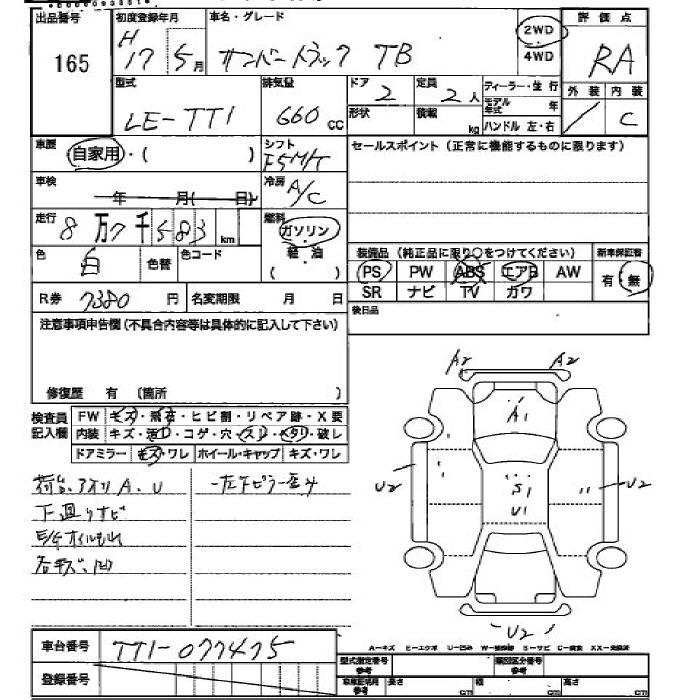 出品番号 初度登録年月 車名・グレード 2WD 4WD 評価点
165 H17 5月 サンバートラック TB RA
外装 内装
／ C
型式 排気量 ドア 定員 ディーラー・並行
LE-TT1 660cc 2 2人 モデル年式 年
形状 積載 kg ハンドル 左・右
車歴 自家用・( ) シフト F5M/T セールスポイント(正常に機能するものに限ります)
車検 年 月( 日) 冷房 A/C
走行 8万7千583km 燃料 ガソリン 軽油
色 白 色替 色コード
装備品(純正品に限り○をつけてください) 新車保証書
PS PW ABS エアB AW 有・無
SR ナビ TV カワ
R券 7380円 名変期限 月 日
後日品
注意事項申告欄(不具合内容等は具体的に記入して下さい)
修復歴 有 (箇所 )
検査員記入欄 FW キズ・飛石・ヒビ割・リペア跡・X要
内装 キズ・汚れ・コゲ・穴・スレ・ヘタリ・破レ
ドアミラー キズ・ワレ ホイール・キャップ キズ・ワレ
荷台、アオリ A、U
下廻りサビ
E/Gオイルもれ
A2 A2
A1
U2 S1 U2
U1
U2
A－キズ E－エクボ U－凹み W－補修跡 S－サビ C－腐食 XX－交換済
車台番号 TT1-077475
登録番号
型式指定番号 参考 類別区分番号 参考
車庫証明用 参考 長さ cm 幅 cm 高さ cm